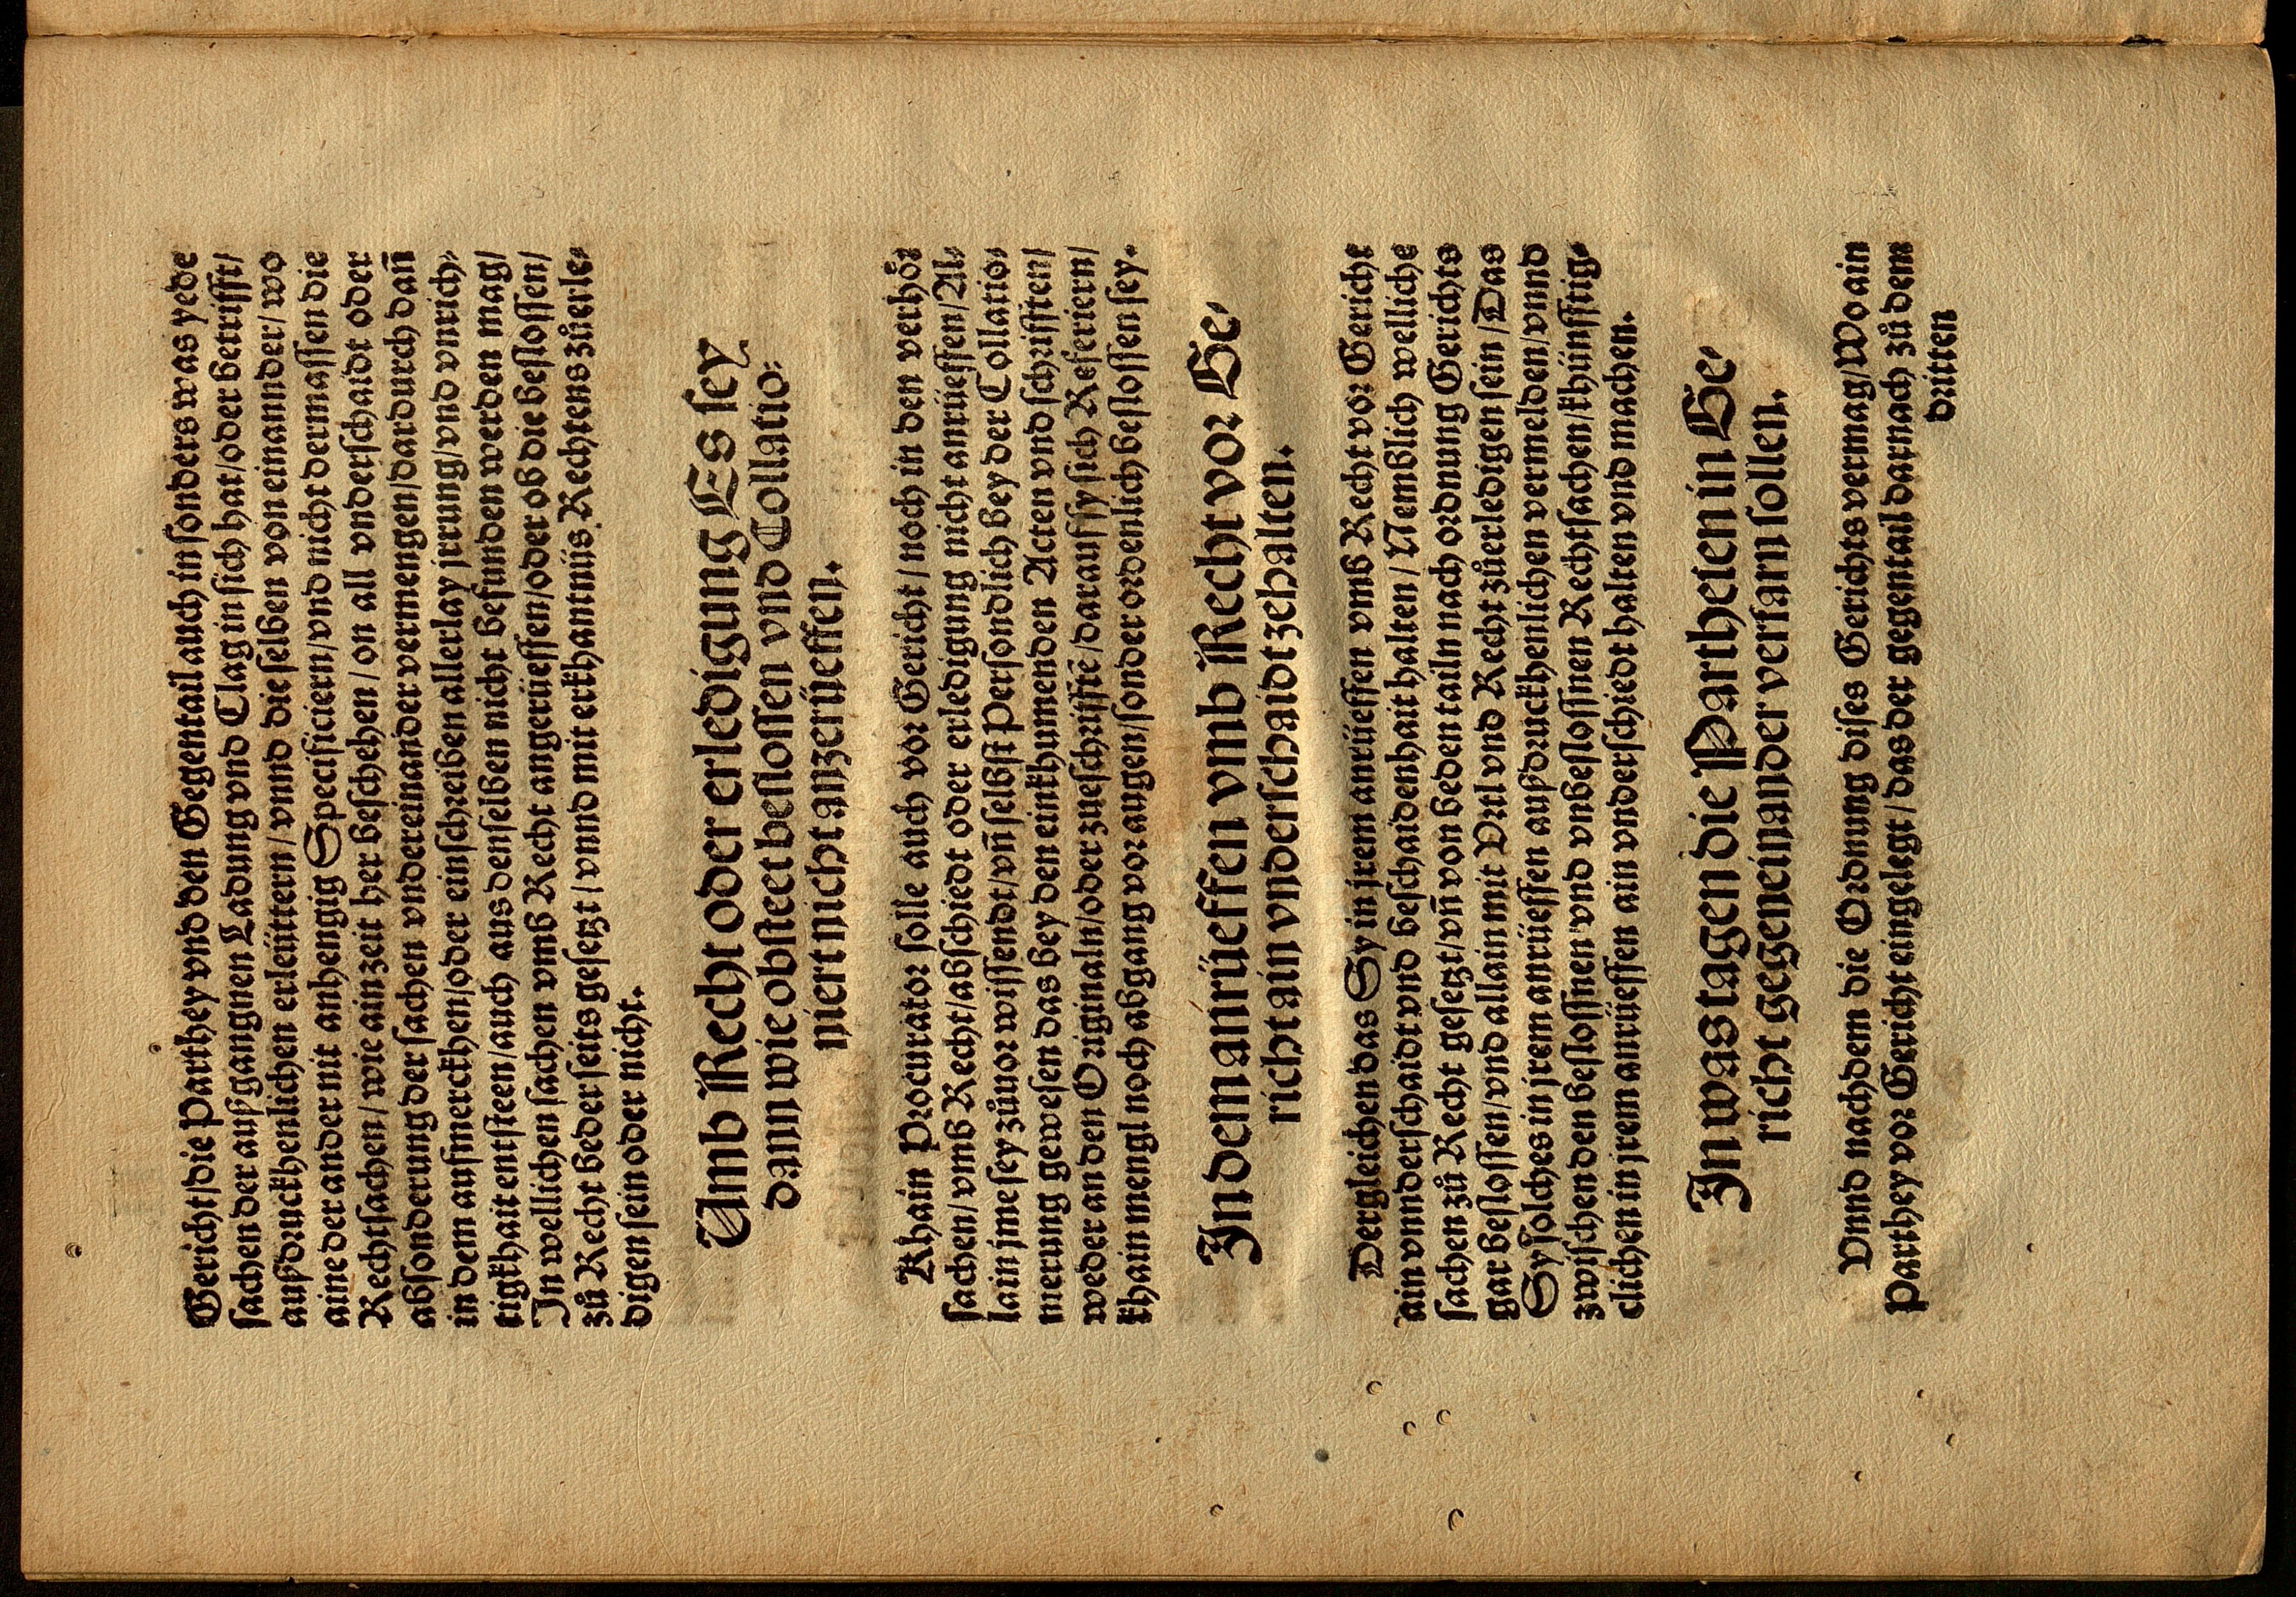 Gericht/die Parthey vnd den Gegentail auch in sonders was yede
sachen der außgangnen Ladung vnd Clag in sich hat/oder betrifft/
außdruckhenlichen erleüttern/vnnd die selben von einannder/wo
aine der ander nit anhengig Specificiern/vnd nicht dermassen die
Rechtsachen/wie ain zeit her beschehen/on all vnderschaidt oder
absonderung der sachen vndereinander vermengen/dardurch dañ
in dem aufmerckhen/oder einschreiben allerlay jrrung/vnd vnrich⸗
tigkhait entsteen/auch aus denselben nicht befunden werden mag/
In wellichen sachen vmb Recht angerüeffen/oder ob die beslossen/
zů Recht beder seits gesetzt/vnnd mit erkhanntnüs Rechtens zůerle⸗
digen sein oder nicht.
Umb Recht oder erledigung Es sey
dann wie obsteet beslossen vnd Collatio⸗
niert nicht anzerüeffen.
Khain Procurator solle auch vor Gericht/noch in den verhör
sachen/vmb Recht/abschiedt oder erledigung nicht anrüeffen/Al⸗
lain jme sey zůuor wissendt/vñ selbst Persondlich bey der Collatio⸗
nierung gewesen das bey den einkhumenden Acten vnd schrifften/
weder an den Originaln/oder zueschrifftē/darauf sy sich Referiern/
khain mengl noch abgang vor augen/sonder ordenlich beslossen sey.
In dem anrüeffen vmb Recht vor Ge⸗
richt ain vnderschaidt zehalten.
Dergleichen das Sy in jrem anrüeffen vmb Recht vor Gericht
ain vnnderschaidt vnd beschaidenhait halten/Nemblich welliche
sachen zů Recht gesetzt/vñ von beden tailn nach ordnung Gerichts
gar beslossen/vnd allain mit Vrtl vnd Recht zůerledigen sein/Das
Sy solches in jrem anrüeffen außdruckhenlichen vermelden/vnnd
zwischen den beslossnen vnd vnbeslossnen Rechtsachen/khünfftig⸗
clichen in jrem anrüeffen ain vnderschiedt halten vnd machen.
In was tagen die Partheien in Ge⸗
richt gegeneinander verfarn sollen.
Vnnd nachdem die Ordnung dises Gerichts vermag/Wo ain
Parthey vor Gericht eingelegt/das der gegentail darnach zů dem
dritten